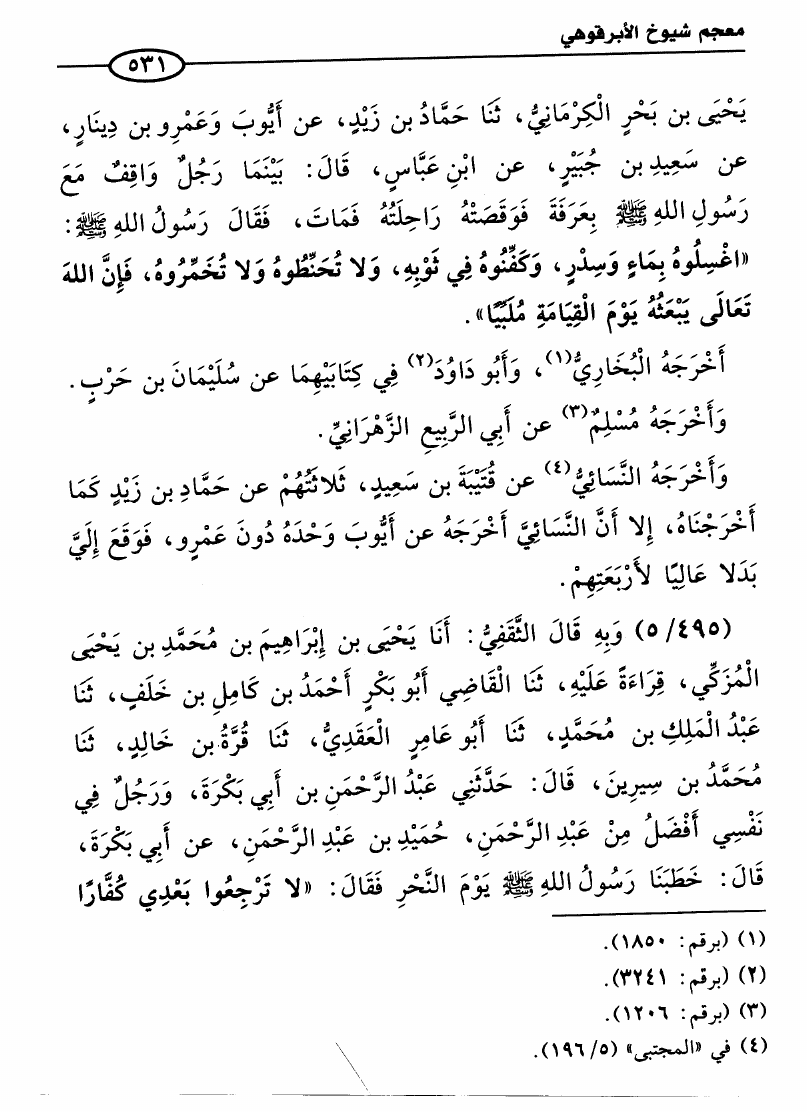 معجم شيوخ الأبرقوهي
٥٣١
يَحْيَى بن بَحْرٍ الْكِرْمَانِيُّ، ثَنَا حَمَّادُ بن زَيْدٍ، عن أَيُّوبَ وَعَمْرِو بن دِينَارٍ،
عن سَعِيدِ بن جُبَيْرٍ، عن ابْنِ عَبَّاسٍ، قَالَ: بَيْنَمَا رَجُلٌ وَاقِفٌ مَعَ
رَسُولِ اللهِ ﷺ بِعَرَفَةَ فَوَقَصَتْهُ رَاحِلَتُهُ فَمَاتَ، فَقَالَ رَسُولُ اللهِ ﷺ:
«اغْسِلُوهُ بِمَاءٍ وَسِدْرٍ، وَكَفِّنُوهُ فِي ثَوْبِهِ، وَلا تُحَنِّطُوهُ وَلا تُخَمِّرُوهُ، فَإِنَّ اللهَ
تَعَالَى يَبْعَثُهُ يَوْمَ الْقِيَامَةِ مُلَبِّيًا».
أَخْرَجَهُ الْبُخَارِيُّ(١)، وَأَبُو دَاوُدَ(٢) فِي كِتَابَيْهِمَا عن سُلَيْمَانَ بن حَرْبٍ.
وَأَخْرَجَهُ مُسْلِمٌ(٣) عن أَبِي الرَّبِيعِ الزَّهْرَانِيِّ.
وَأَخْرَجَهُ النَّسَائِيُّ(٤) عن قُتَيْبَةَ بن سَعِيدٍ، ثَلاثَتُهُمْ عن حَمَّادِ بن زَيْدٍ كَمَا
أَخْرَجْنَاهُ، إِلا أَنَّ النَّسَائِيَّ أَخْرَجَهُ عن أَيُّوبَ وَحْدَهُ دُونَ عَمْرٍو، فَوَقَعَ إِلَيَّ
بَدَلا عَالِيًا لأَرْبَعَتِهِمْ.
(٥/٤٩٥) وَبِهِ قَالَ الثَّقَفِيُّ: أَنَا يَحْيَى بن إِبْرَاهِيمَ بن مُحَمَّدِ بن يَحْيَى
الْمُزَكِّي، قِرَاءَةً عَلَيْهِ، ثَنَا الْقَاضِي أَبُو بَكْرٍ أَحْمَدُ بن كَامِلِ بن خَلَفٍ، ثَنَا
عَبْدُ الْمَلِكِ بن مُحَمَّدٍ، ثَنَا أَبُو عَامِرٍ الْعَقَدِيُّ، ثَنَا قُرَّةُ بن خَالِدٍ، ثَنَا
مُحَمَّدُ بن سِيرِينَ، قَالَ: حَدَّثَنِي عَبْدُ الرَّحْمَنِ بن أَبِي بَكْرَةَ، وَرَجُلٌ فِي
نَفْسِي أَفْضَلُ مِنْ عَبْدِ الرَّحْمَنِ، حُمَيْدِ بن عَبْدِ الرَّحْمَنِ، عن أَبِي بَكْرَةَ،
قَالَ: خَطَبَنَا رَسُولُ اللهِ ﷺ يَوْمَ النَّحْرِ فَقَالَ: «لا تَرْجِعُوا بَعْدِي كُفَّارًا
(١) (برقم: ١٨٥٠).
(٢) (برقم: ٣٢٤١).
(٣) (برقم: ١٢٠٦).
(٤) في «المجتبى» (٥/ ١٩٦).